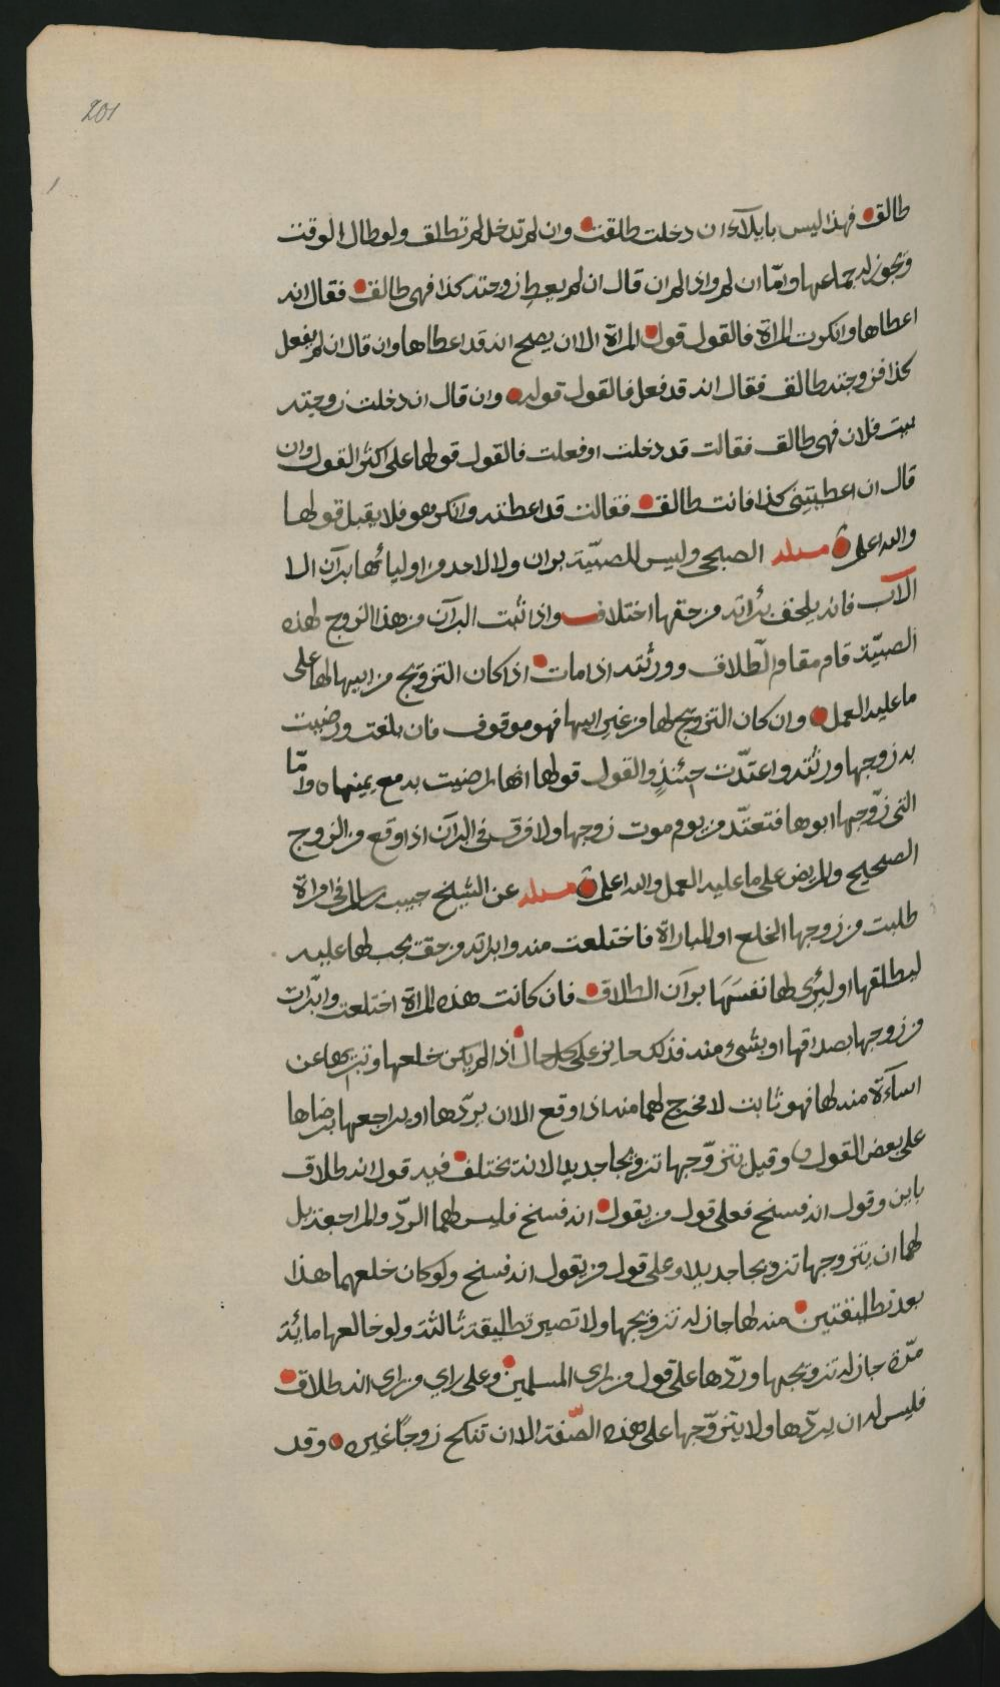 201
طالق فهذا ليس بايلآء ان دخلت طلقت وان لم تدخل لم تطلق ولو طال الوقت
ويجوز له جماعها وامّا ان لم واذا لم ان قال ان لم يعط زوجته كذا فهى طالق فقال انه
اعطاها وانكرت المراة فالقول قول المراة الا ان يصح انه قد اعطاها وان قال ان لم يفعل
كذا فزوجته طالق فقال انه قد فعل فالقول قوله وان قال ان دخلت زوجته
بيت فلان فهى طالق فقالت قد دخلت او فعلت فالقول قولها على اكثر القول وان
قال ان اعطيتينى كذا فانت طالق فقالت قد اعطته وانكر هو فلا يقبل قولها
والله اعلم مسئلة الصبحى وليس للصبيّة بران ولا لاحد من اوليائها بران الا
الآب فانه يلحق برأته من حقها اختلاف واذا ثبت البرآن من هذا الزوج لهذه
الصبيّة قام مقام الطلاق وورثته اذا مات اذا كان التزويج من ابيها لها على
ما عليه العمل وان كان التزويج لها من غير ابيها فهو موقوف فان بلغت ورضيت
به زوجها ورثته واعتدّت حينئذٍ والقول قولها انها رضيت به مع يمينها وامّا
التى زوّجها ابوها فتعتدّ من يوم موت زوجها ولا فرق فى البرآن اذا وقع من الزوج
الصحيح والمريض على ما عليه العمل والله اعلم مسئلة عن الشيخ حبيب بن سالم فى امراة
طلبت من زوجها الخلع او المباراة فاختلعت منه وابراته من حق يجب لها عليه
ليطلقها او ليبرى لها نفسَهَا برآن الطلاق فان كانت هذه المراة اختلعت وابّرات
من زوجها بصداقها او بشىء منه فذلك جائز على كل حال اذا لم يكن خلعها وتبريها عن
اسآءة منه لها فهو ثابت لا مخرج لهما منه اذا وقع الا ان يردّها او يراجعها برضاها
على بعض القول وقيل يتزوّجها تزويجا جديدا لانه يختلف فيه قول انه طلاق
باين وقول انه فسخ فعلى قول من يقول انه فسخ فليس لهما الردّ والمراجعة بل
لهما ان يتزوجها تزويجا جديدا وعلى قول من يقول انه فسخ ولو كان خلعهما هذا
بعد تطليقتين منه لها جاز له تزويجها ولا تصير تطليقة ثالثة ولو خالعها مائة
مدّة جاز له تزويجها وردّها على قول من راى المسلمين وعلى راي من راى انه طلاق
فليس له ان يردّها ولا يتزوّجها على هذه الصّفة الا ان تنكح زوجًا غيره وقد